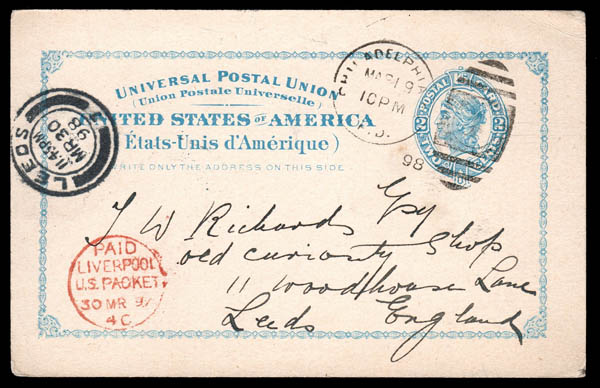 UNIVERSAL POSTAL UNION
(Union Postale Universelle)
UNITED STATES OF AMERICA
(États-Unis d'Amérique)
WRITE ONLY THE ADDRESS ON THIS SIDE
PHILADELPHIA
10 PM
98
POSTAL CARD
TWO
LEEDS
11.45PM
MR 30
98
PAID
LIVERPOOL
U.S. PACKET
30 MR 9
4C
J W Richards
old curiosity Shop
11 Woodhouse Lane
Leeds England